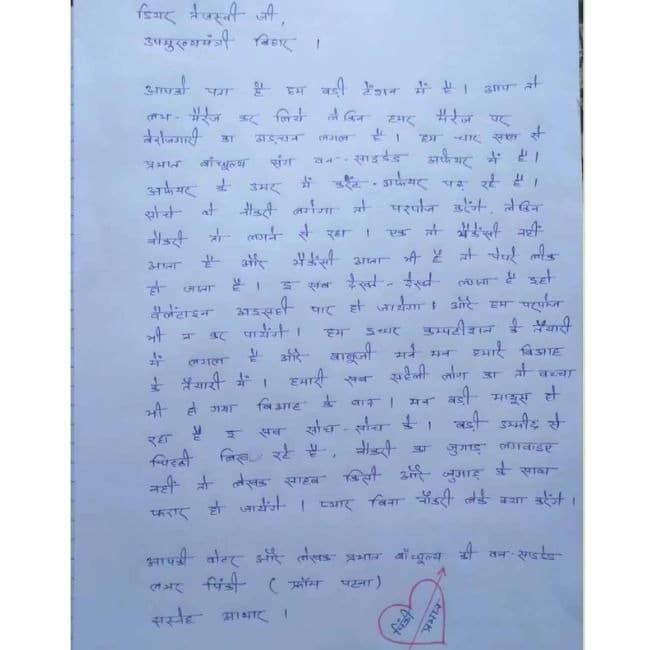 डियर तेजस्वी जी,
उपमुख्यमंत्री बिहार ।
आपको पता है हम बड़ी टेंशन में है । आप तो
लभ-मैरेज कर लिये लेकिन हमर मैरेज पर
बेरोजगारी का अड़चन लगल है । हम चार साल से
प्रभात बाँधुल्य संग वन-साइडेड अफेयर में है ।
अफेयर के उमर में करेंट-अफेयर पढ़ रहे है ।
सोचे थे नौकरी लगेगा तो परपोज करेंगे, लेकिन
नौकरी तो लगने से रहा । एक तो भैकेंसी नहीं
आता है और भैकेंसी आता भी है तो पेपरे लीक
हो जाता है । इ सब देखते-देखते लगता है इहो
वैलेंटाइन अइसही पार हो जायेगा । और हम परपोज
भी न कर पायेंगे । हम इधर कम्पटीशान के तैयारी
में लगल है और बाबूजी मने मन हमारे बिआह
के तैयारी में । हमारी सब सहेली लोग का तो बच्चा
भी हो गया बिआह के बाद । मन बड़ी मायूस हो
रहा है इ सब सोच-सोच के । बड़ी उम्मीद से
चिट्ठी लिख रहे है, नौकरी का जुगाड़ लगवाइए
नहीं तो लेखक साहब किसी और जुगाड़ के साथ
फरार हो जायेंगे । प्यार बिना नौकरी लेके क्या करेंगे ।
आपकी वोटर और लेखक प्रभात बाँधुल्य की वन-साइडेड
लभर पिंकी ( फ्रॉम पटना )
सस्नेह आभार ।
पिंकी प्रभात